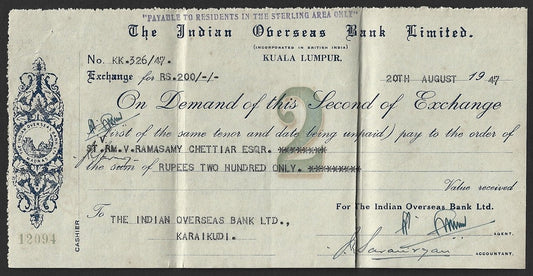 "PAYABLE TO RESIDENTS IN THE STERLING AREA ONLY"
The Indian Overseas Bank Limited.
(INCORPORATED IN BRITISH INDIA)
KUALA LUMPUR.
No. KK.326/47.
Exchange for RS.200/-/-
20TH AUGUST 1947
On Demand of this Second of Exchange
2
first of the same tenor and date being unpaid) pay to the order of
ST.RM.V.RAMASAMY CHETTIAR ESQR.
the sum of RUPEES TWO HUNDRED ONLY.
Value received
For The Indian Overseas Bank Ltd.
To THE INDIAN OVERSEAS BANK LTD.,
KARAIKUDI.
AGENT.
ACCOUNTANT.
CASHIER
12094